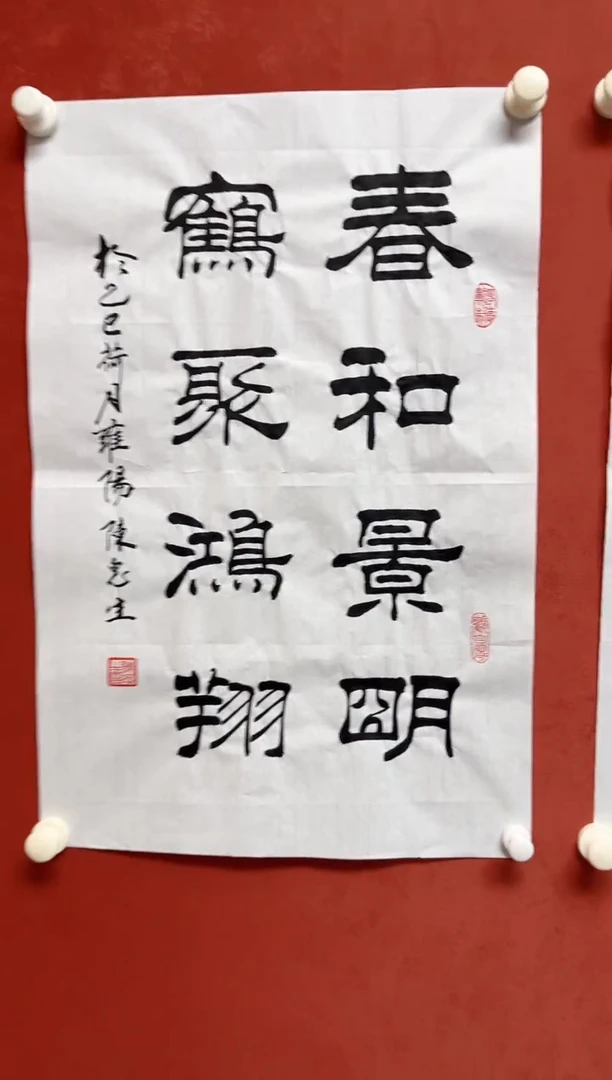 春和景明
鶴聚鴻翔
於乙巳荷月雍陽陳志生